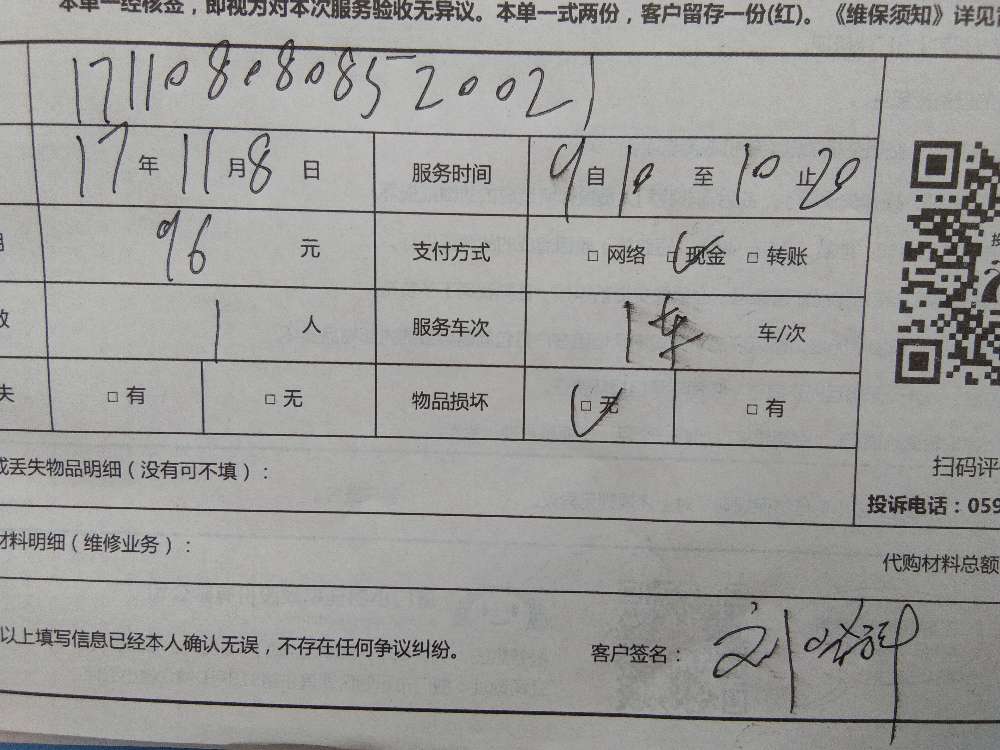 本单一经核签，即视为对本次服务验收无异议。本单一式两份，客户留存一份(红)。《维保须知》详见
17110808085200021
17年 11月8 日 服务时间 9自10 至 10 止20
96 元 支付方式 □ 网络 □ 现金 □ 转账
1 人 服务车次 1车 车/次
失 □ 有 □ 无 物品损坏 □ 无 □ 有
或丢失物品明细（没有可不填）：
扫码评
投诉电话：059
材料明细（维修业务）：
代购材料总额
以上填写信息已经本人确认无误，不存在任何争议纠纷。 客户签名：刘